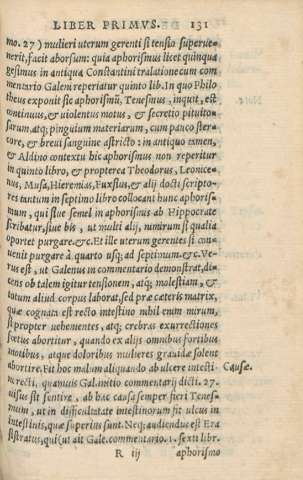 LIBER PRIMVS. 131
mo. 27) mulieri uterum gerenti si tensio superue-
nerit, facit aborsum: quia aphorismus licet quinqua
gesimus in antiqua Constantini tralatione cum com
mentario Galeni reperiatur quinto lib. in quo Philo
theus exponit sic aphorismũ, Tenesmus, inquit, est
continuus, & uiolentus motus, & secretio pituito-
sarum, atq; pinguium materiarum, cum pauco ster-
core, & breui sanguine astricto: in antiquo tamen,
& Aldino contextu hic aphorismus non reperitur
in quinto libro, & propterea Theodorus, Leonice-
nus, Musa, Hieremias, Fuxsius, & alij docti scripto-
res tantum in septimo libro collocant hunc aphoris-
mum, qui siue semel in aphorismis ab Hippocrate
scribatur, siue bis, ut multi alij, nimirum si qualia
oportet purgare. &c. Et ille uterum gerentes si con-
uenit purgare à quarto usq; ad septimum. &c. Ve-
rus est, ut Galenus in commentario demonstrat, di-
cens ob talem igitur tensionem, atq; molestiam, &
totum aliud corpus laborat, sed præ cæteris matrix,
quæ cognata est recto intestino nihil enim mirum,
si propter uehementes, atq; crebras exurrectiones
fœtus abortitur, quando ex alijs omnibus fortibus
motibus, atque doloribus mulieres grauidæ solent
abortire. Fit hoc malum aliquando ab ulcere intesti- Causæ.
ni recti, quamuis Gal. initio commentarij dicti. 27.
uisus sit sentire, ab hac causa semper fieri Tenes-
mum, ut in difficultate intestinorum fit ulcus in
intestinis, quæ superius sunt. Neq; audiendus est Era
sistratus, qui (ut ait Gale. commentario. 1. sexti libr.
R iij aphorismo